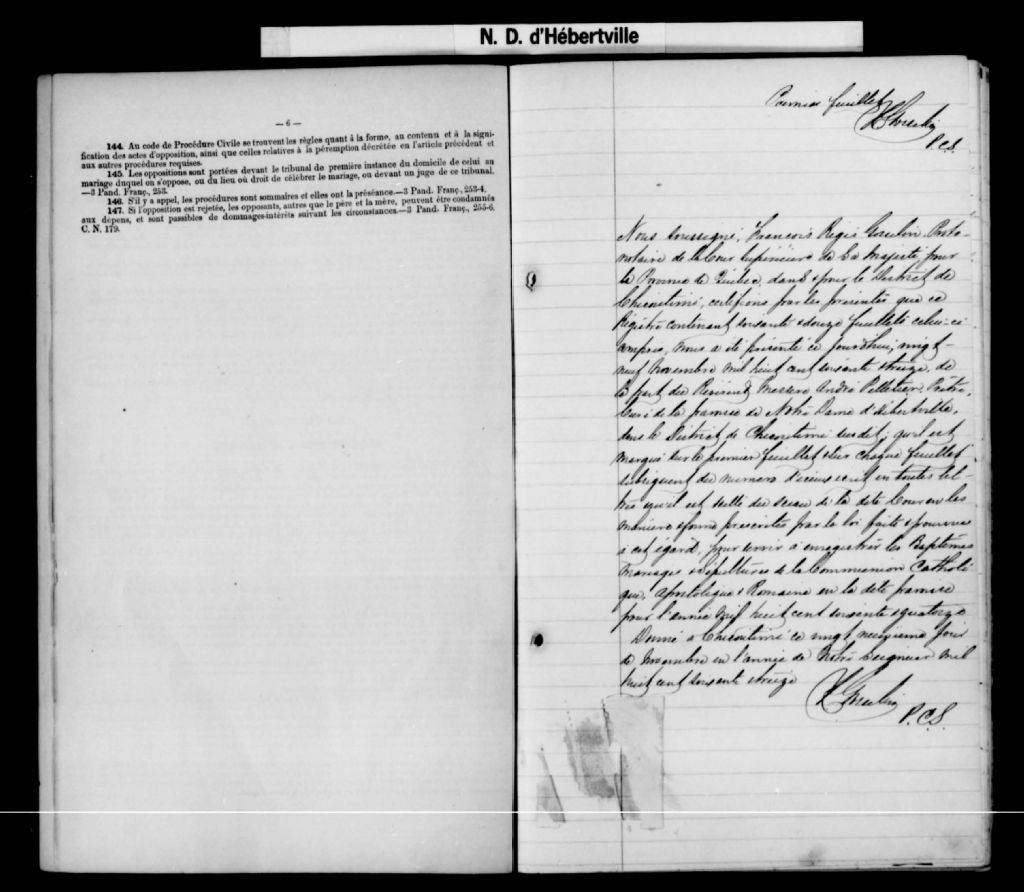 N. D. d'Hébertville
— 6 —
144. Au code de Procédure Civile se trouvent les règles quant à la forme, au contenu et à la signi-
fication des actes d'opposition, ainsi que celles relatives à la péremption décrétée en l'article précédent et
aux autres procédures requises.
145. Les oppositions sont portées devant le tribunal de première instance du domicile de celui au
mariage duquel on s'oppose, ou du lieu où droit de célébrer le mariage, ou devant un juge de ce tribunal.
—3 Pand. Franç., 253.
146. S'il y a appel, les procédures sont sommaires et elles ont la préséance.—3 Pand. Franç., 253-4.
147. Si l'opposition est rejetée, les opposants, autres que le père et la mère, peuvent être condamnés
aux dépens, et sont passibles de dommages-intérêts suivant les circonstances.—3 Pand. Franç., 255-6.
C. N. 179.
Premier feuillet
P.C.S.
Nous soussigné, François Régis Gosselin, Proto-
notaire de la Cour Supérieure de Sa Majesté, pour
la Province de Québec, dans & pour le District de
Chicoutimi, certifions par les présentes que ce
Régistre contenant soixante & douze feuillets celui-ci
compris, nous a été présenté ce jourd'hui, vingt-
neuf Novembre mil huit cent soixante & treize, de
la part du Révérend Messire André Pelletier, Prêtre,
Curé de la paroisse de Notre Dame d'Hébertville,
dans le District de Chicoutimi susdit; qu'il est
marqué sur le premier feuillet & sur chaque feuillet
subséquent du numéro d'icieux écrit en toutes let-
tres qu'il est scellé du sceau de la dite Cour en les
manière & forme prescrites par la loi faite & pourvue
à cet égard, pour servir à enregistrer les Baptêmes
Mariages & Sépultures de la Communion Catholi
que, Apostolique & Romaine en la dite paroisse
pour l'année Mil huit cent soixante & quatorze
Donné à Chicoutimi ce vingt neuvième jour
de Novembre en l'année de Notre Seigneur mil
huit cent soixante & treize
P.C.S.